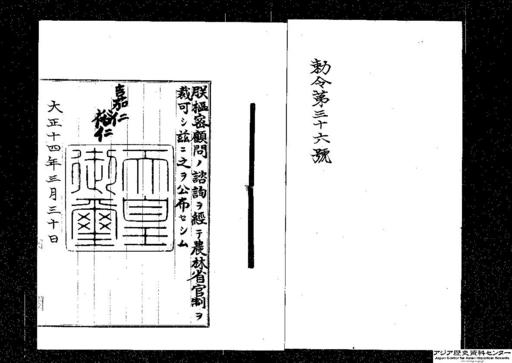 勅令第三十六號
朕樞密顧問ノ諮詢ヲ經テ農林省官制ヲ
裁可シ茲ニ之ヲ公布セシム
嘉仁
裕仁
天皇御璽
大正十四年三月三十日
アジア歴史資料センター
Japan Center for Asian Historical Records